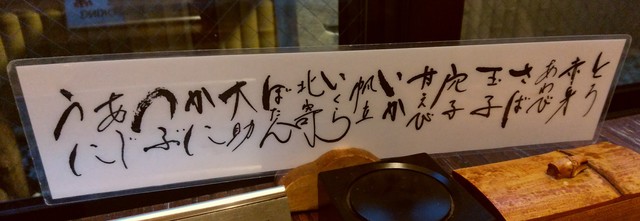 とろ
赤身
あわび
さば
玉子
穴子
甘えび
いか
帆立
いくら
北寄
ぼたん
大助
かに
つぶ
あじ
うに